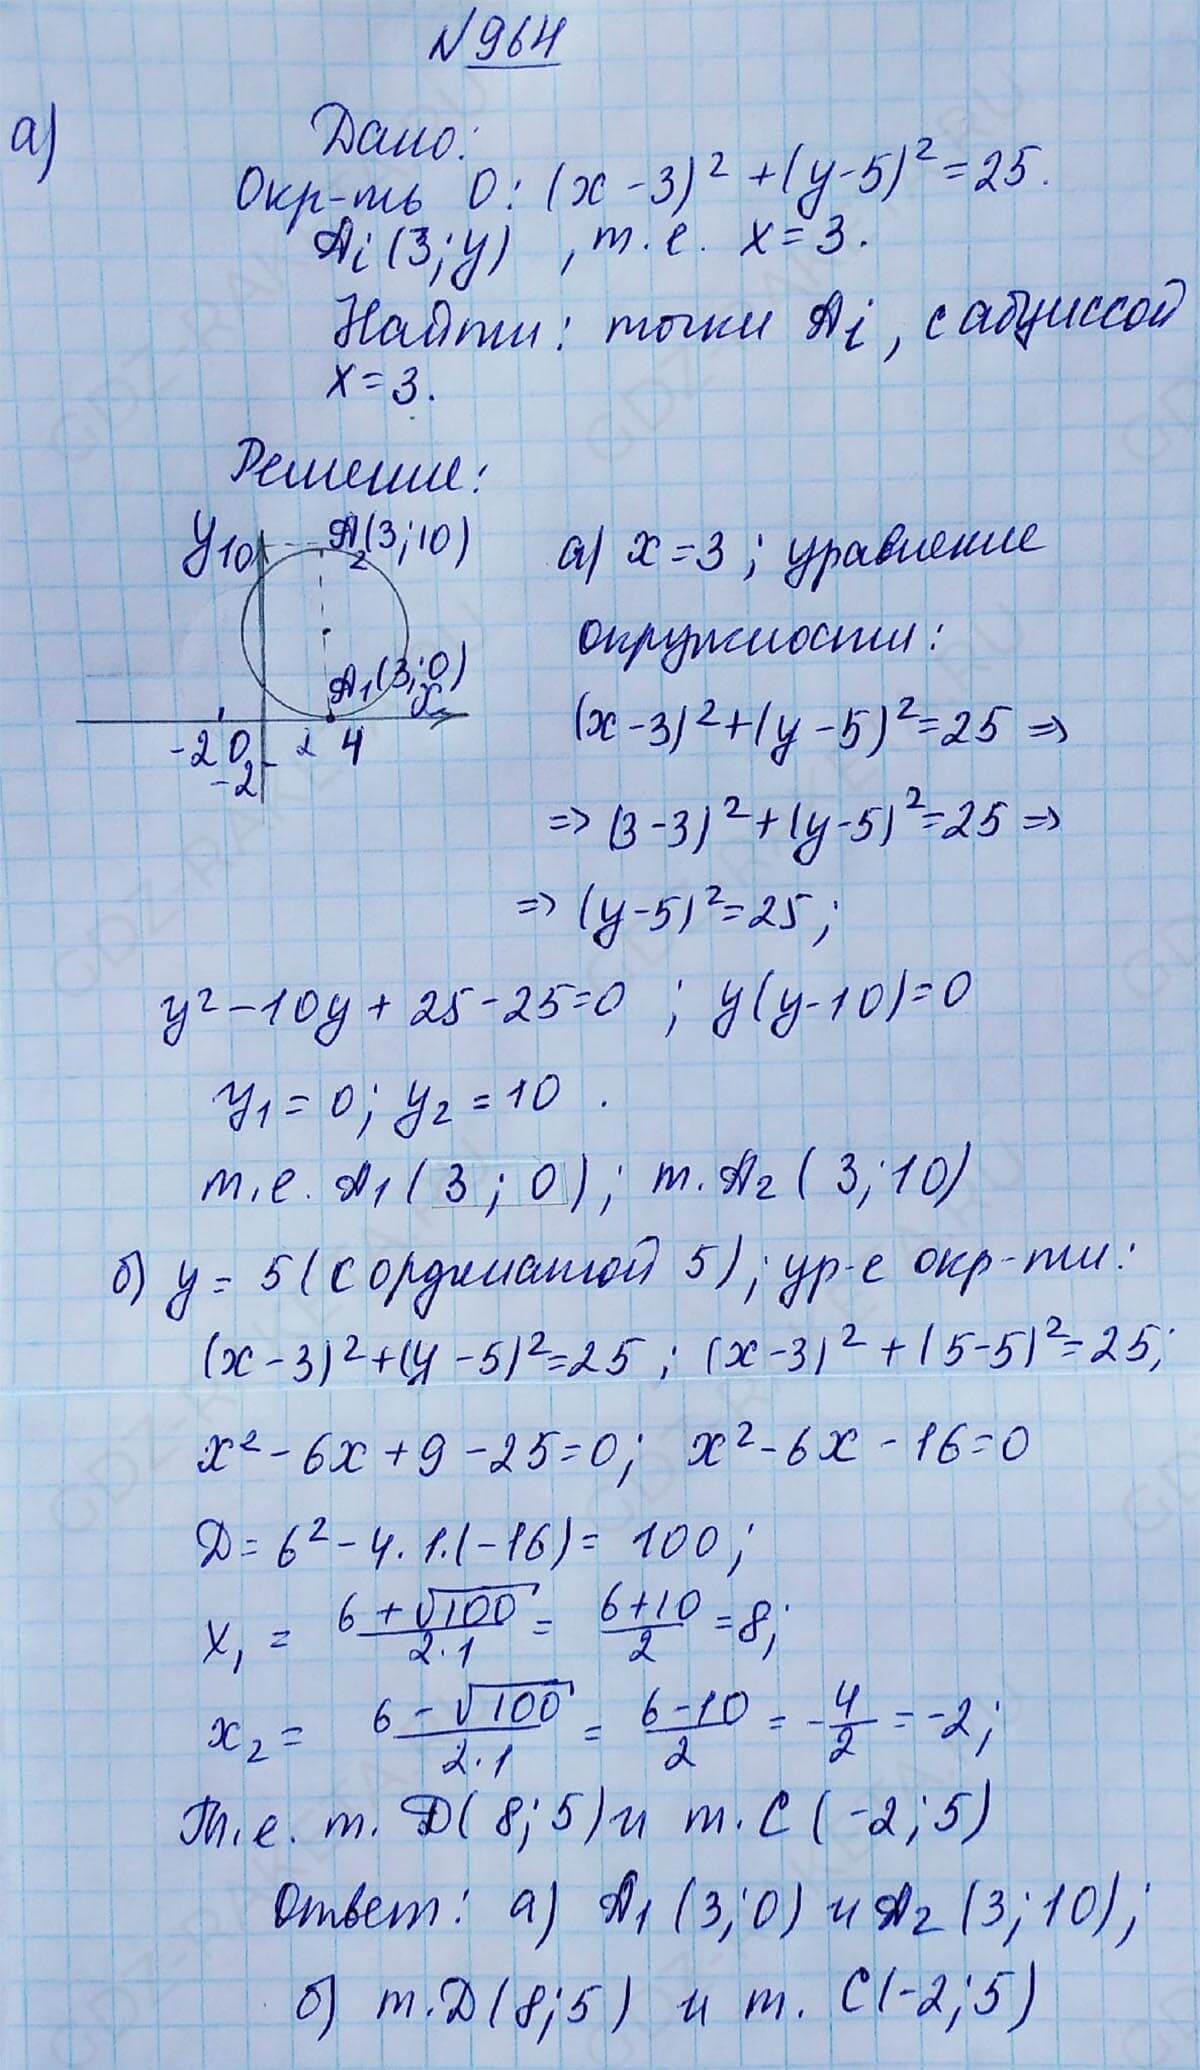 N 964
а) Дано:
Окр-ть О: (x-3)² + (y-5)² = 25.
Ai (3; y), т.е. x = 3.
Найти: точки Ai, с абциссой
x = 3.
Решение:
y 10 A₂(3; 10)
A₁(3; 0)
x
-2 0 2 4
-2
а) x = 3; уравнение
окружности:
(x-3)² + (y-5)² = 25 =>
=> (3-3)² + (y-5)² = 25 =>
=> (y-5)² = 25;
y² - 10y + 25 - 25 = 0; y(y-10) = 0
y₁ = 0; y₂ = 10.
т.е. A₁(3; 0); т. A₂(3; 10)
б) y = 5 (с ординатой 5); ур-е окр-ти:
(x-3)² + (y-5)² = 25; (x-3)² + (5-5)² = 25;
x² - 6x + 9 - 25 = 0; x² - 6x - 16 = 0
D = 6² - 4·1·(-16) = 100;
x₁ = (6+√100)/(2·1) = (6+10)/2 = 8;
x₂ = (6-√100)/(2·1) = (6-10)/2 = -4/2 = -2;
Т.е. т. D(8; 5) и т. C(-2; 5)
Ответ: а) A₁(3; 0) и A₂(3; 10);
б) т. D(8; 5) и т. C(-2; 5)
GDZ-RAKETA.RU